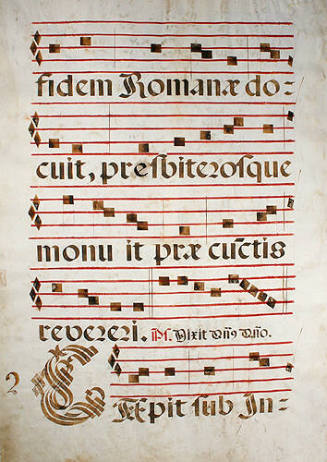 fidem Romanæ do-
cuit, presbiterosque
monu it præ cuc̃tis
revereri. Ps. Dixit Dñ9 Dño.
2
CÆpit sub In-